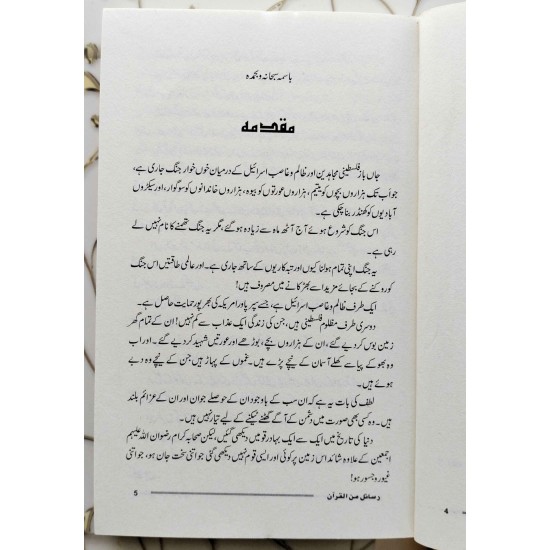 باسمہ سبحانہ وبحمدہ
مقدمہ
جاں باز فلسطینی مجاہدین اور ظالم و غاصب اسرائیل کے درمیان خوں خوار جنگ جاری ہے،
جو اَب تک ہزاروں بچوں کو یتیم، ہزاروں عورتوں کو بیوہ، ہزاروں خاندانوں کو سوگوار، اور سیکڑوں
آبادیوں کو کھنڈر بنا چکی ہے۔
اس جنگ کو شروع ہوئے آج آٹھ ماہ سے زیادہ ہو گئے، مگر یہ جنگ تھمنے کا نام نہیں لے
رہی ہے۔
یہ جنگ اپنی تمام ہولناکیوں اور تباہ کاریوں کے ساتھ جاری ہے۔ اور عالمی طاقتیں اس جنگ
کو روکنے کے بجائے مزید اسے بھڑکانے میں مصروف ہیں!
ایک طرف ظالم و غاصب اسرائیل ہے، جسے سپر پاور امریکہ کی بھرپور حمایت حاصل ہے۔
دوسری طرف مظلوم فلسطینی ہیں، جن کی زندگی ایک عذاب سے کم نہیں! ان کے تمام گھر
زمین بوس کر دیے گئے، ان کے ہزاروں بچے، بوڑھے اور عورتیں شہید کر دیے گئے۔ اب
وہ بھوکے پیاسے کھلے آسمان کے نیچے پڑے ہیں۔ غموں کے پہاڑ ہیں جن کے نیچے وہ دبے
ہوئے ہیں۔
لطف کی بات یہ ہے کہ ان سب کے باوجود ان کے حوصلے جوان اور ان کے عزائم بلند
ہیں۔ وہ کسی بھی صورت میں دشمن کے آگے گھٹنے ٹیکنے کے لیے تیار نہیں ہیں۔
دنیا کی تاریخ میں ایک سے ایک بہادر قومیں دیکھی گئیں، لیکن صحابہ کرام رضوان اللہ علیہم
اجمعین کے علاوہ شائد اس زمین پر کوئی اور ایسی قوم نہیں دیکھی گئی جو اتنی سخت جان ہو، جو اتنی
غیور و جسور ہو!
رسائل من القرآن
5
4